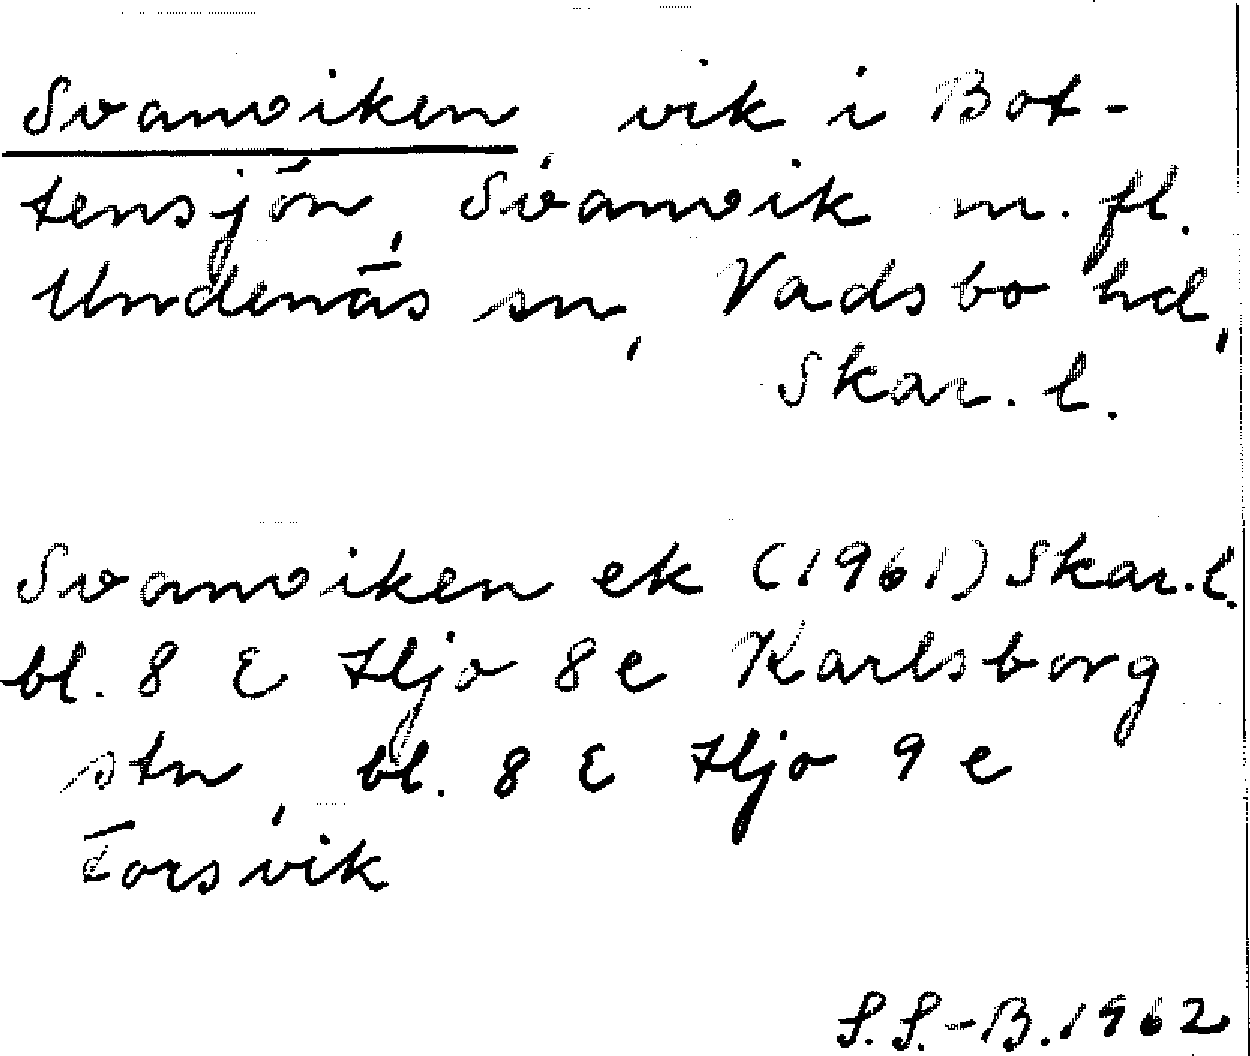 Svanviken, vik i Bot-
tensjön, Svanvik m. fl.
Undenäs sn, Vadsbo hd,
Skar. l.
Svanviken ek (1961) Skar. l.
bl. 8 E Hjo 8 e Karlsborg
stn, bl. 8 E Hjo 9 e
Forsvik
S.S.-B. 1962